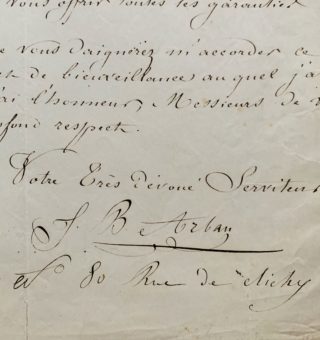 vous offrir toutes les garanties
vous daignerez m'accorder ce
de bienveillance auquel j'a
l'honneur, Messieurs de
respect.
Votre Très dévoué Serviteur
J. B Arban
80 Rue de clichy